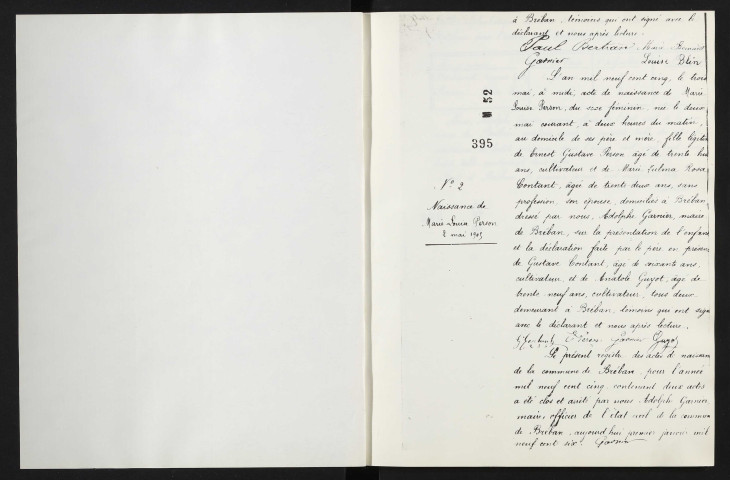 à Bréban, témoins qui ont signé avec le
déclarant et nous après lecture.
Paul Bertrand
Garnier Louise Blin
L'an mil neuf cent cinq, le trois
mai, à midi, acte de naissance de Marie
Louise Person, du sexe féminin, née le deux
mai courant, à deux heures du matin,
au domicile de ses père et mère, fille légitime
de Ernest Gustave Person âgé de trente huit
ans, cultivateur et de Marie Zulma Rosa
Contant, âgée de trente deux ans, sans
profession, son épouse, domiciliés à Bréban,
dressé par nous, Adolphe Garnier, maire
de Bréban, sur la présentation de l'enfant
et la déclaration faite par le père en présence
de Gustave Contant, âgé de soixante ans,
cultivateur, et de Anatole Guyot, âgé de
trente neuf ans, cultivateur, tous deux
demeurant à Bréban, témoins qui ont signé
avec le déclarant et nous après lecture.
G. Contant E. Person Garnier Guyot
Le présent registre des actes de naissance
de la commune de Bréban, pour l'année
mil neuf cent cinq contenant deux actes
a été clos et arrêté par nous Adolphe Garnier,
maire, officier de l'état civil de la commune
de Bréban, aujourd'hui premier janvier mil
neuf cent six. Garnier
M 52
395
N° 2
Naissance de
Marie Louise Person
2 mai 1905